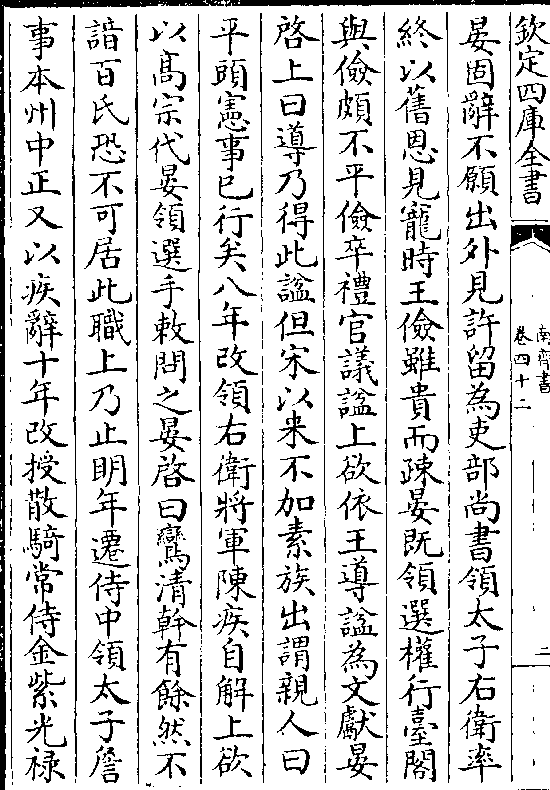 欽定四庫全書
南齊書
卷四十二
二
晏固辭不願出外見許留為吏部尚書領太子右衛率
終以舊恩見寵時王儉雖貴而疎晏既領選權行臺閣
與儉頗不平儉卒禮官議諡上欲依王導諡為文獻晏
啓上曰導乃得此諡但宋以来不加素族出謂親人曰
平頭憲事已行矣八年改領右衛將軍陳疾自解上欲
以髙宗代晏領選手敕問之晏啓曰鸞清幹有餘然不
諳百氏恐不可居此職上乃止明年遷侍中領太子詹
事本州中正又以疾辭十年改授散騎常侍金紫光禄